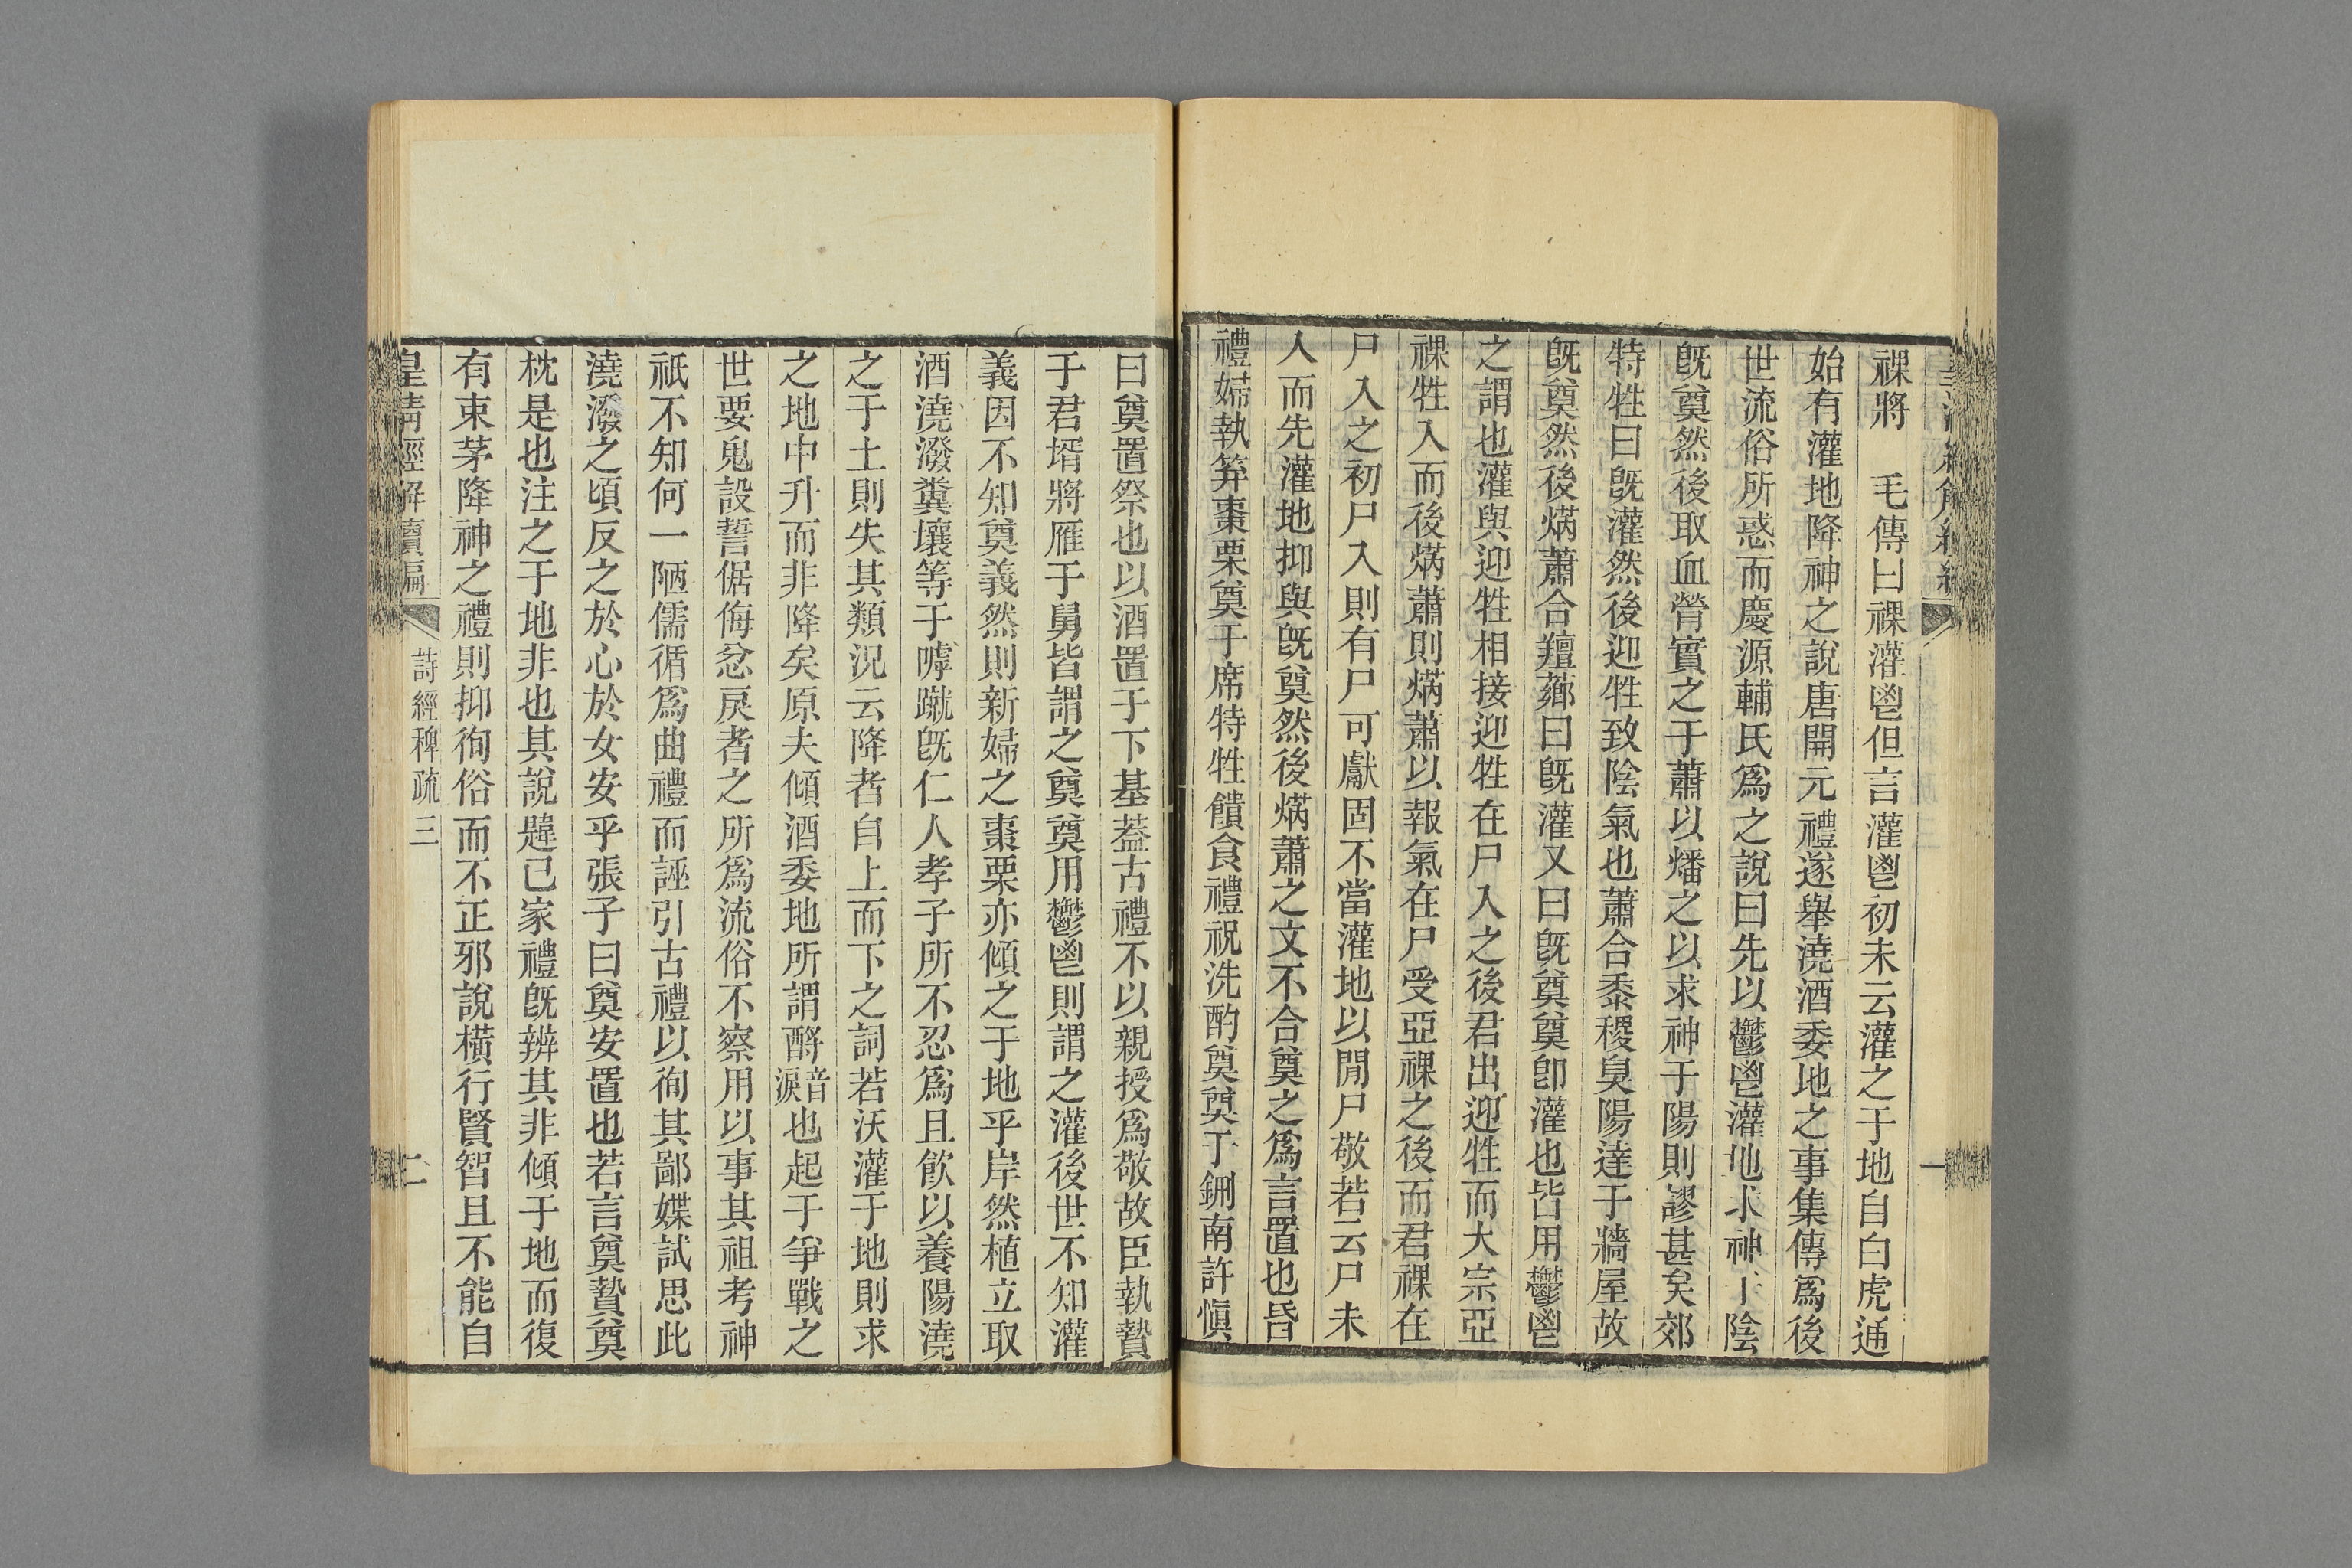 祼將　毛傳曰祼灌鬯但言灌鬯初未云灌之于地自白虎通
始有灌地降神之說唐開元禮遂舉澆酒委地之事集傳爲後
世流俗所惑而慶源輔氏爲之說曰先以鬱鬯灌地求神于陰
旣奠然後取血膋實之于蕭以燔之以求神于陽則謬甚矣郊
特牲曰旣灌然後迎牲致陰氣也蕭合黍稷臭陽達于牆屋故
旣奠然後焫蕭合羶薌曰旣灌又曰旣奠奠卽灌也皆用鬱鬯
之謂也灌與迎牲相接迎牲在尸入之後君出迎牲而大宗亞
祼牲入而後焫蕭則焫蕭以報氣在尸受亞祼之後而君祼在
尸入之初尸入則有尸可獻固不當灌地以閒尸敬若云尸未
入而先灌地抑與旣奠然後焫蕭之文不合奠之爲言置也昏
禮婦執笲棗栗奠于席特牲饋食禮祝洗酌奠奠于鉶南許愼
曰奠置祭也以酒置于下基蓋古禮不以親授爲敬故臣執贄
于君壻將雁于舅皆謂之奠奠用鬱鬯則謂之灌後世不知灌
義因不知奠義然則新婦之棗栗亦傾之于地乎岸然植立取
酒澆潑糞壤等于嘑蹴旣仁人孝子所不忍爲且飮以養陽澆
之于土則失其類況云降者自上而下之詞若沃灌于地則求
之地中升而非降矣原夫傾酒委地所謂酹音淚也起于爭戰之
世要鬼設誓倨侮忿戾者之所爲流俗不察用以事其祖考神
祇不知何一陋儒循爲曲禮而誣引古禮以徇其鄙媟試思此
澆潑之頃反之於心於女安乎張子曰奠安置也若言奠贄奠
枕是也注之于地非也其說韙已家禮旣辨其非傾于地而復
有束茅降神之禮則抑徇俗而不正邪說橫行賢智且不能自
皇淸經解續編　詩經稗疏三　二